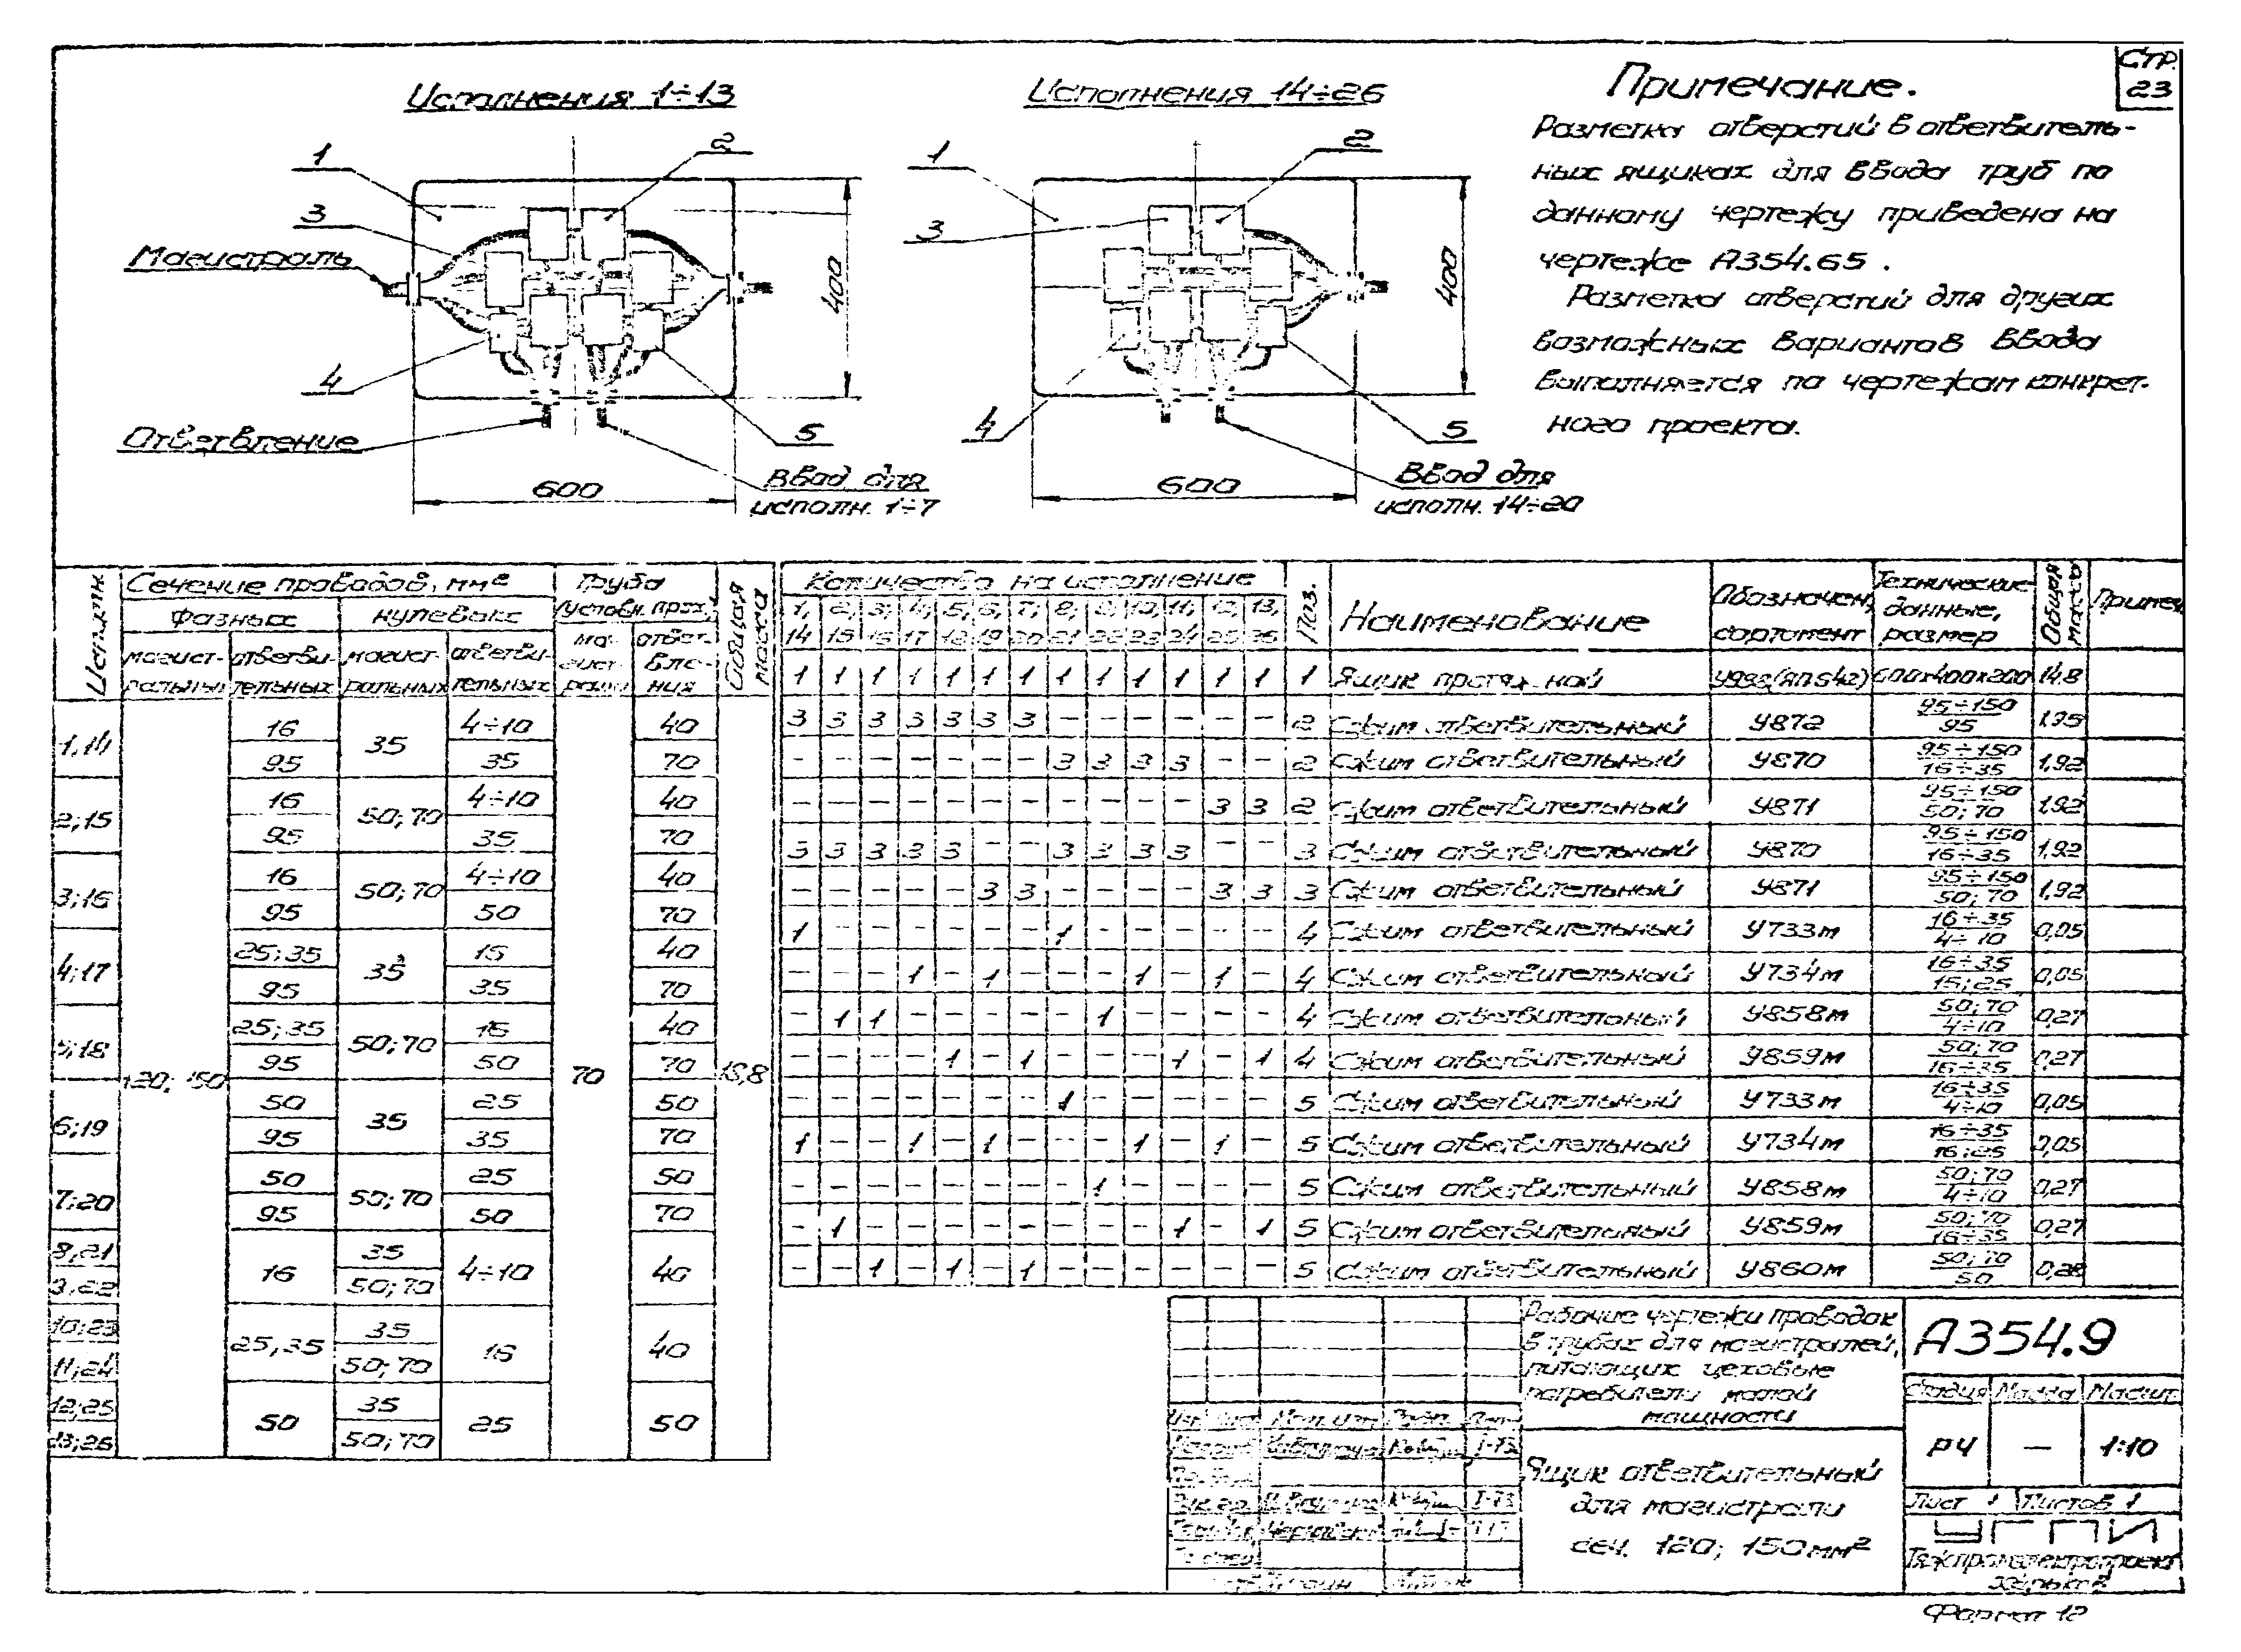 Стр.
23
Исполнения 1÷13
1
2
3
Магистраль
4
Ответвление
5
Ввод для
исполн. 1÷7
600
400
Исполнения 14÷26
1
2
3
4
5
Ввод для
исполн. 14÷20
600
400
Примечание.
Разметка отверстий в ответвитель-
ных ящиках для ввода труб по
данному чертежу приведена на
чертеже А354.65.
Разметка отверстий для других
возможных вариантов ввода
выполняется по чертежам конкрет-
ного проекта.
Исполн. Сечение проводов, мм² Труба Общая масса
фазных нулевых (условн. прох.)
магист- ответви- магист- ответви- ма- ответ-
ральных тельных ральных тельных гист- вле-
рали ния
1,14 120; 150 16 35 4÷10 70 40 18,8
95 35 70
2;15 16 50;70 4÷10 40
95 35 70
3;16 16 50;70 4÷10 40
95 50 70
4;17 25;35 35 16 40
95 35 70
5;18 25;35 50;70 16 40
95 50 70
6;19 50 35 25 50
95 35 70
7;20 50 50;70 25 50
95 50 70
8,21 16 35 4÷10 40
9,22 50;70
10;23 25,35 35 16 40
11;24 50;70
12;25 50 35 25 50
13;26 50;70
Количество на исполнение Поз. Наименование Обозначен, сортамент Технические данные, размер Общая масса Примеч.
1, 2, 3, 4, 5, 6, 7, 8, 9, 10, 11, 12, 13,
14 15 16 17 18 19 20 21 22 23 24 25 26
1 1 1 1 1 1 1 1 1 1 1 1 1 1 Ящик протяжной У992(ЯП542) 600х400х200 14,8
3 3 3 3 3 3 3 – – – – – – 2 Сжим ответвительный У872 95÷150/95 1,95
– – – – – – – 3 3 3 3 – – 2 Сжим ответвительный У870 95÷150/16÷35 1,92
– – – – – – – – – – – 3 3 2 Сжим ответвительный У871 95÷150/50;70 1,92
3 3 3 3 3 – – 3 3 3 3 – – 3 Сжим ответвительный У870 95÷150/16÷35 1,92
– – – – – 3 3 – – – – 3 3 3 Сжим ответвительный У871 95÷150/50;70 1,92
1 – – – – – – 1 – – – – – 4 Сжим ответвительный У733м 16÷35/4÷10 0,05
– – – 1 – 1 – – – 1 – 1 – 4 Сжим ответвительный У734м 16÷35/16;25 0,05
– 1 1 – – – – – 1 – – – – 4 Сжим ответвительный У858м 50;70/4÷10 0,27
– – – – 1 – 1 – – – 1 – 1 4 Сжим ответвительный У859м 50;70/16÷35 0,27
– – – – – – – 1 – – – – – 5 Сжим ответвительный У733м 16÷35/4÷10 0,05
1 – – 1 – 1 – – – 1 – 1 – 5 Сжим ответвительный У734м 16÷35/16;25 0,05
– – – – – – – – 1 – – – – 5 Сжим ответвительный У858м 50;70/4÷10 0,27
– 1 – – – – – – – – 1 – 1 5 Сжим ответвительный У859м 50;70/16÷35 0,27
– – 1 – 1 – 1 – – – – – – 5 Сжим ответвительный У860м 50;70/50 0,28
Рабочие чертежи проводок
в трубах для магистралей,
питающих цеховые
потребители малой
мощности
А354.9
Стадия Масса Масшт.
РЧ — 1:10
Ящик ответвительный
для магистрали
сеч. 120; 150мм²
Лист 1 Листов 1
УГПИ
Тяжпромэлектропроект
Харьков
I-73
I-73
Формат 12